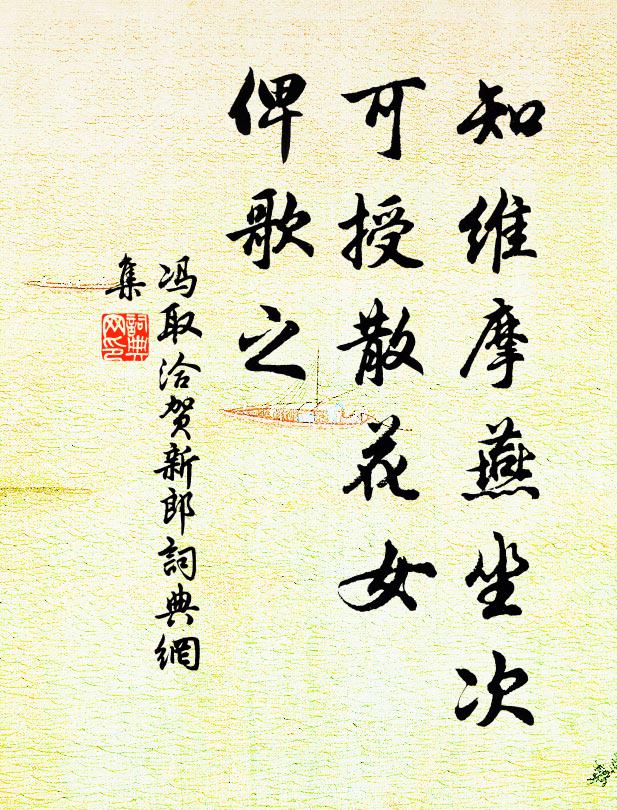 知维摩燕坐次
可授散花女
俾歌之
冯取洽贺新郎詞典網
集
詞典
网印